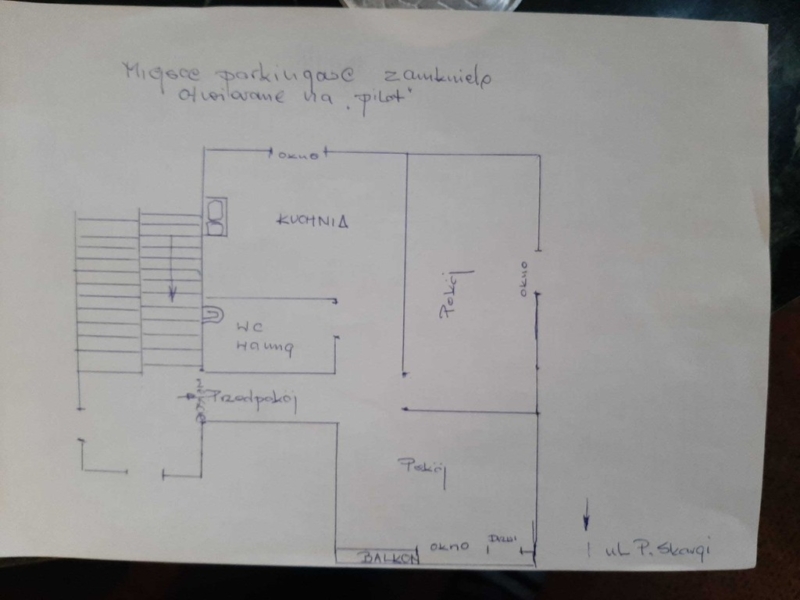 Miejsce parkingowe zamknięte
otwierane na "pilot"
okno
KUCHNIA
Pokój
okno
WC
wanna
Przedpokój
Pokój
okno
Drzwi
BALKON
ul. P. Skargi